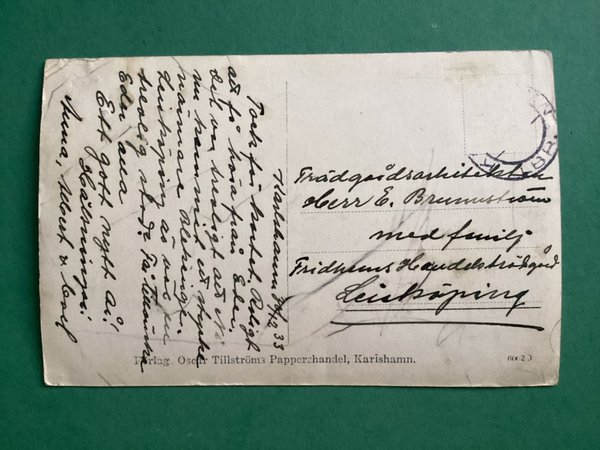 Karlshamn 30/12 33
Tack för kortet. Roligt
att få höra från Eder,
det var trevligt att Ni
nu kommit ett stycke
närmare Blekingen.
Linköping är
trevlig stad.
Eder alla
Ett gott nytt år!
Hälsningar
Anna, Albert o Carl
Trädgårdsarkitekten
Herr E. Brunnström
med familj
Fridhems Handelsträdgård
Linköping
Förlag Oscar Tillströms Pappershandel, Karlshamn.